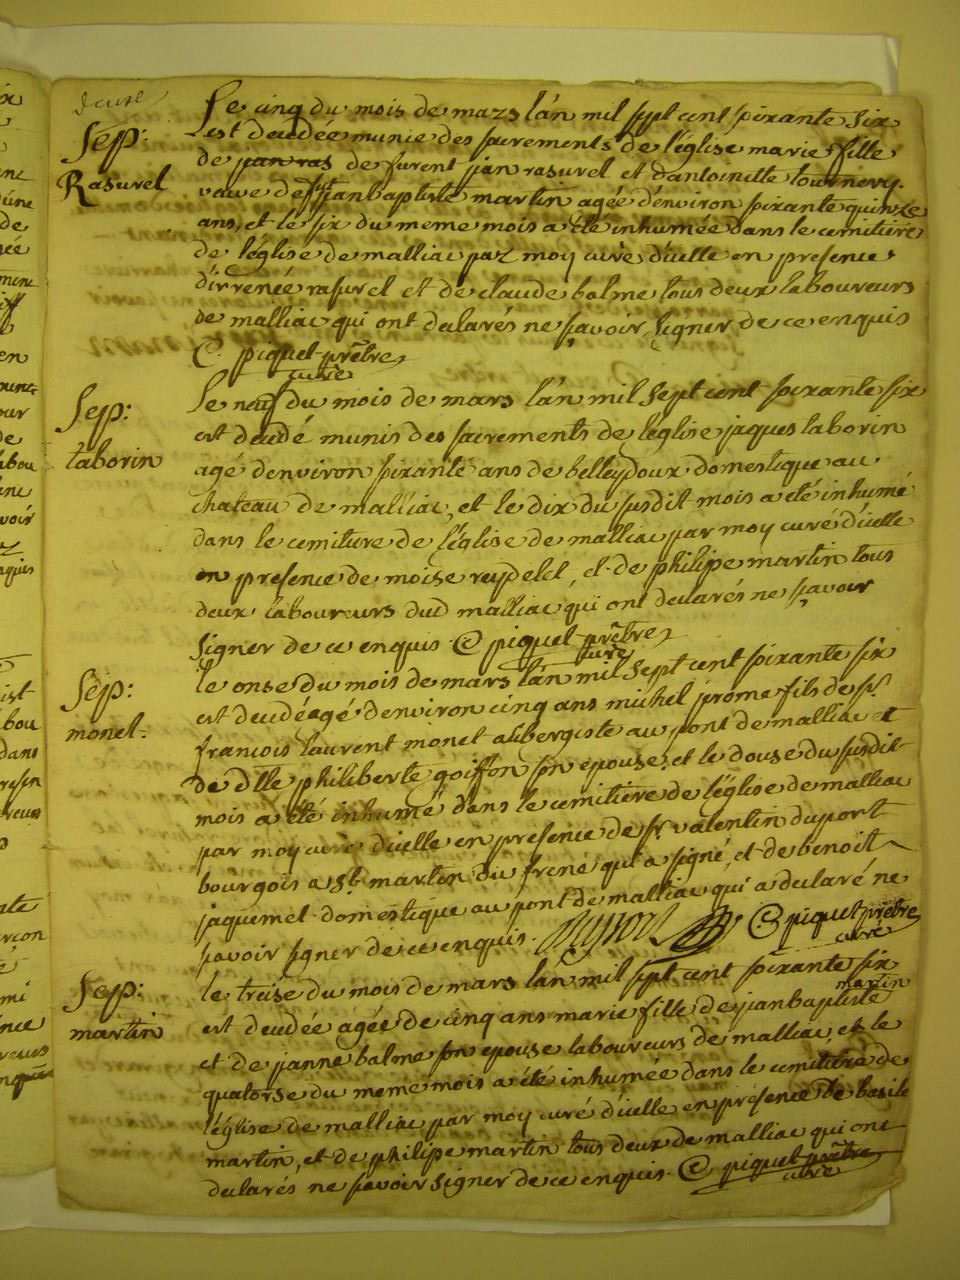 Sep:
Rasurel
Le cinq du mois de mars l'an mil sept cent soixante six
est decedée munie des sacrements de l'église marie fille
de jan ras de furent jan rasurel et d'antoinette tournery.
vave de janbaptiste martin agée d'environ soixante quinze
ans, et le six du meme mois a été inhumée dans le cemitiere
de l'église de malliac par moy curé d'icelle en presence
d'irrenée rasurel et de claude balme tous deux laboureurs
de malliac qui ont declarés ne sçavoir signer de ce enquis
C. piquet prêtre
curé
Sep:
taborin
Le neuf du mois de mars l'an mil sept cent soixante six
est decedé munis des sacrements de l'église jaques taborin
agé d'environ soixante ans de belleydoux domestique au
chateau de malliac, et le dix du susdit mois a été inhumé
dans le cemitiere de l'église de malliac par moy curé d'icelle
en presence de moise reydelet, et de philipe martin tous
deux laboureurs dud malliac qui ont declarés ne sçavoir
signer de ce enquis C piquet prêtre
curé
Sep:
monet.
le onse du mois de mars l'an mil sept cent soixante six
est decedé agé d'environ cinq ans michel jerome fils de sr.
francois laurent monet aubergiste au pont de malliac et
de dlle philiberte goiffon son epouse, et le douse du susdit
mois a été inhumé dans le cemitiere de l'église de malliac
par moy curé d'icelle en presence de sr valentin dupont
bourgois a st. martin du frene qui a signé, et de benoit
jaquemet domestique au pont de malliac qui a declaré ne
sçavoir signer de ce enquis. Dupont C piquet prêtre
curé
Sep:
martin
le treise du mois de mars l'an mil sept cent soixante six
martin
est decedée agée de cinq ans marie fille de janbaptiste
et de janne balme son epouse laboureurs de malliac, et le
quatorse du meme mois a été inhumée dans le cemitière de
l'église de malliac par moy curé d'icelle en présence de basile
martin, et de philipe martin tous deux de malliac qui ont
declarés ne sçavoir signer de ce enquis. C piquet prêtre
curé